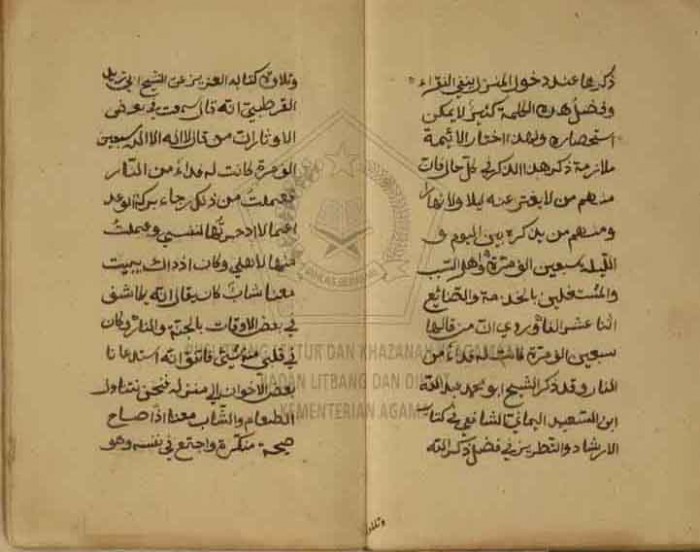 ذكرها عند دخول المنزل ينفي الفقراء
وفضل هذه الكلمة كثيرة لا يمكن
استحصاره ولهذا اختار الائمة
ملازمة ذكر هذا الذكر في كل حال فات
منهم من لا يفتر عنه ليلا ولا نهارا
ومنهم من يذكره بين اليوم و
الليلة سبعين الف مرة واهل التسبب
والمشتغلين بالخدمة والصنائع
اثنا عشر الفا وروي ان من قالها
سبعين الف مرة كانت له فداء من
النار وقد ذكر الشيخ ابو محمد عبد الله
ابن السعيد اليماني الشافعي في كتاب
الارشاد والتطريز في فضل ذكر الله
وتلاوة
وتلاوة كتابه العزيز عن الشيخ ابي زيد
القرطبي انه قال سمعت في بعض
الاوثارات من قال لا اله الا الله سبعين
الف مرة كانت له فداء من النار
فعملت من ذلك رجاء بركة الوعد
اعمالا ادخرتها لنفسي وعملت
منها لاهلي وكان اذ ذاك يبيت
معنا شاب كان يقال انه يكاشف
في بعض الاوقات بالجنة والنار وكان
في قلبي منه شيئ فاتفق انه استدعانا
بعض الاخوان الى منزله فنحن نتناول
الطعام والشاب معنا اذا صاح
صيحة منكرة واجتمع في نفسه وهو
PUSLITBANG LEKTUR DAN KHAZANAH KEAGAMAAN
BADAN LITBANG DAN DIKLAT
KEMENTERIAN AGAMA